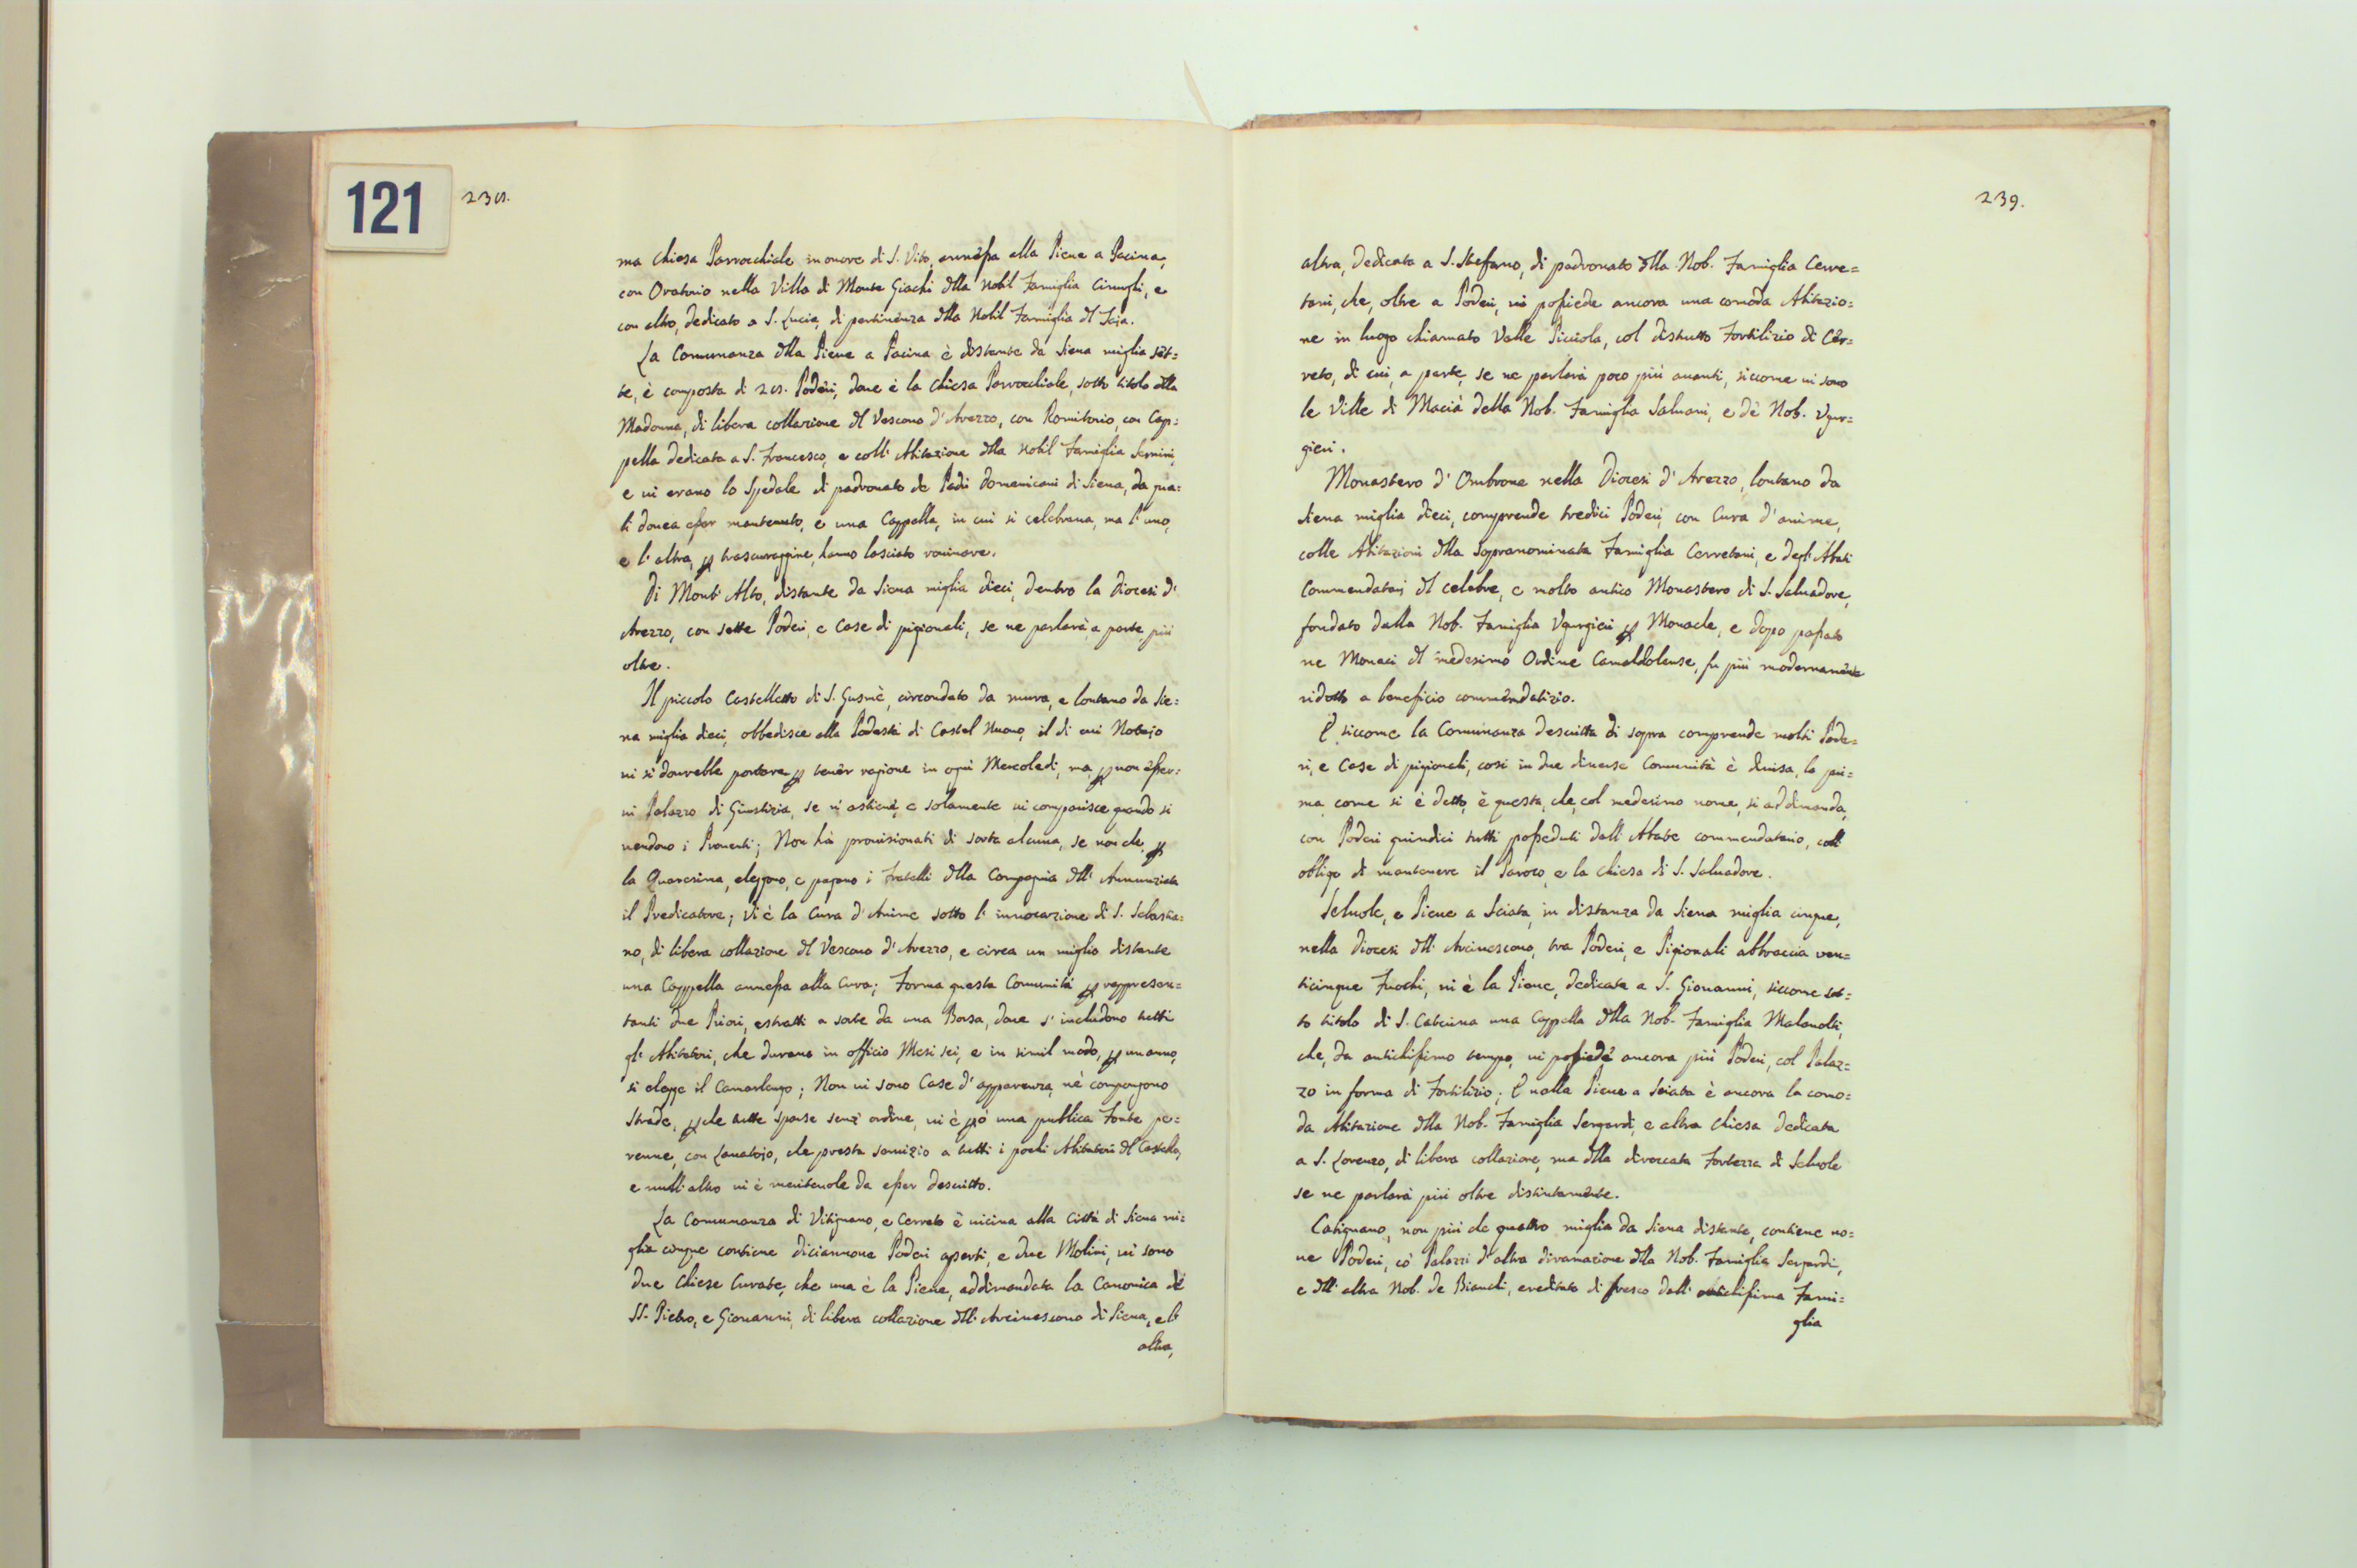 121
238.
ma Chiesa Parrocchiale in onore di S. Vito, annessa alla Pieue a Pacina,
con Oratorio nella Villa di Monte Giachi dlla Nobil Famiglia Cinughi, e
con altro, dedicato a S. Lucia, di pertinenza dlla Nobil Famiglia dl Taja.
La Comunanza dlla Pieue a Pacina è distante da Siena miglia set=
te, è composta di 28. Poderi, doue è la Chiesa Parrocchiale, sotto titolo dlla
Madonna, di libera collazione dl Vescouo d'Arezzo, con Romitorio, con Cap=
pella dedicata a S. Francesco, e coll' Abitazione dlla Nobil Famiglia
e ui erano lo Spedale di padronato de Padri Domenicani di Siena, da qua=
li douea esser mantenuto, e una Cappella, in cui si celebraua, ma l'uno,
e l'altra, p trascuraggine, hanno lasciato rouinare.
Di Mont'Alto, distante da Siena miglia dieci, dentro la Diocesi d'
Arezzo, con sette Poderi, e Case di pigionali, se ne parlarà, a parte, più
oltre.
Il piccolo Castelletto di S. Gusmè, circondato da mura, e lontano da Sie=
na miglia dieci, obbedisce alla Podestà di Castel Nuouo, il di cui Notajo
ui si dourebbe portare p tener ragione in ogni Mercoledì, ma, p non esser=
ui Palazzo di Giustizia, se n' astiene, e solamente ui comparisce quando si
uendono i Prouenti; Non hà prouisionati di sorta alcuna, se non che, p
la Quaresima, eleggono, e pagano i Fratelli dlla Compagnia dll' Annunziata
il Predicatore; Vi è la Cura d'Anime sotto l'inuocazione di S. Sebastia=
no, di libera collazione dl Vescouo d'Arezzo, e circa un miglio distante
una Cappella annessa alla Cura; Forma questa Comunità p rappresen=
tanti due Priori, estratti a sorte da una Borsa, doue s'includono tutti
gl'Abitatori, che durano in officio Mesi sei, e in simil modo, p un anno,
si elegge il Camarlengo; Non ui sono Case d'apparenza, nè compongono
Strade, p che tutte sparse senz'ordine, ui è pò una publica Fonte pe=
renne, con Lauatojo, che presta seruizio a tutti i pochi Abitatori dl Castello,
e null'altro ui è meriteuole da esser descritto.
La Comunanza di Vitignano, e Cerreto è uicina alla Città di Siena mi=
glia cinque contiene diciannoue Poderi aperti, e due Molini, ui sono
due Chiese Curate, che una è la Pieue, addimandata la Canonica dè
SS. Pietro, e Giouanni, di libera collazione dll' Arciuescouo di Siena, e l'
altra,
239.
altra, dedicata a S. Stefano, di padronato dlla Nob. Famiglia Cerre=
tani, che, oltre a Poderi, ui possiede ancora una comoda Abitazio=
ne in luogo chiamato Valle Picciola, col distrutto Fortilizio di Cer=
reto, di cui, a parte, se ne parlarà poco più auanti, siccome ui sono
le Ville di Macià della Nob. Famiglia Saluani, e dè Nob. Vgur=
gieri.
Monastero d'Ombrone nella Diocesi d'Arezzo, lontano da
Siena miglia dieci, comprende tredici Poderi, con Cura d'anime,
colle Abitazioni dlla Sopranominata Famiglia Cerretani, e degl'Abati
Commendatarj dl celebre, e molto antico Monastero di S. Saluadore,
fondato dalla Nob. Famiglia Vgurgieri p Monache, e dopo passato
ne Monaci dl medesimo Ordine Camaldolense, fu più modernamente
ridotto a beneficio commendatizio.
E siccome la Comunanza descritta di sopra comprende molti Pode=
ri, e Case di pigionali, così in due diuerse Comunità è diuisa, la pri=
ma, come si è detto, è questa, che, col medesimo nome, si addimanda,
con Poderi quindici tutti posseduti dall'Abate commendatario, coll'
obligo di mantenere il Paroco, e la Chiesa di S. Saluadore.
Seluole, e Pieue a Sciata, in distanza da Siena miglia cinque,
nella Diocesi dll' Arciuescouo, tra Poderi, e Pigionali abbraccia uen=
ticinque Fuochi, ui è la Pieue, dedicata a S. Giouanni, siccome sot=
to titolo di S. Caterina una Cappella dlla Nob. Famiglia Malauolti,
che, da antichissimo tempo, ui possiede ancora più Poderi, col Palaz=
zo in forma di Fortilizio; E nella Pieue a Sciata è ancora la como=
da Abitazione dlla Nob. Famiglia Sergardi, e altra Chiesa dedicata
a S. Lorenzo, di libera collazione, ma dlla diroccata Fortezza di Seluole
se ne parlarà più oltre distintamente.
Catignano, non più che quattro miglia da Siena distante, contiene no=
ue Poderi, cò Palazzi d'altra diramazione dlla Nob. Famiglia Sergardi,
e dll' altra Nob. de Bianchi, ereditato di fresco dall' antichissima Fami=
glia